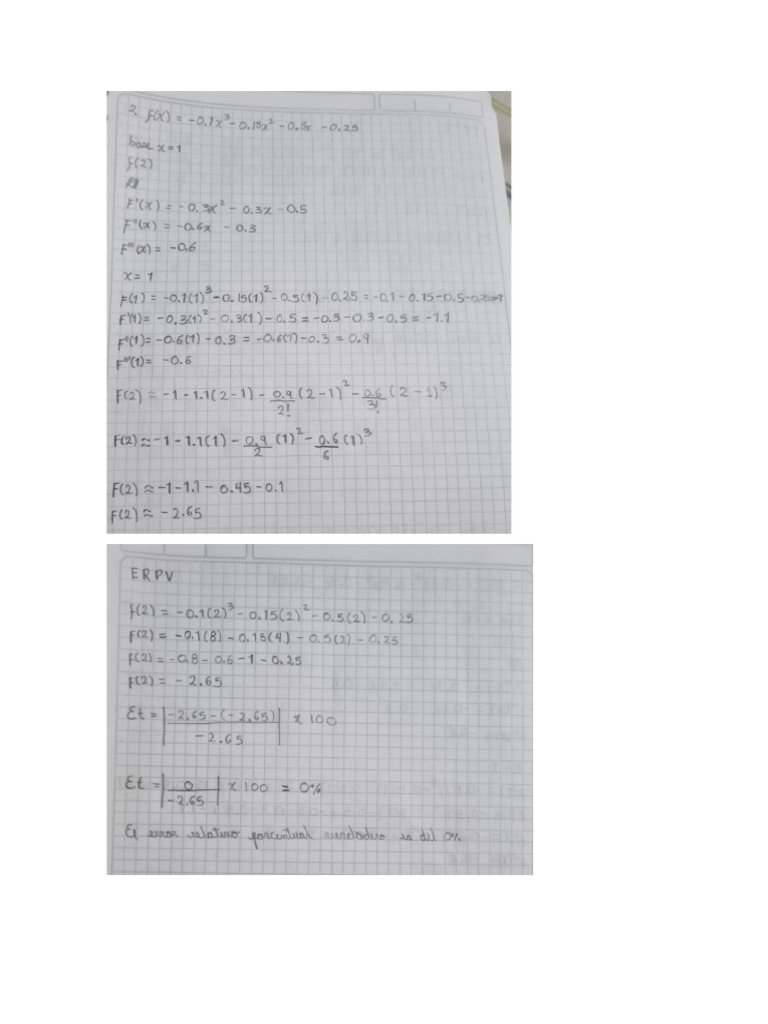 2. f(x) = -0.1x³ - 0.15x² - 0.5x - 0.25
base x = 1
f(2)
F'(x) = -0.3x² - 0.3x - 0.5
F''(x) = -0.6x - 0.3
F'''(x) = -0.6
x = 1
F(1) = -0.1(1)³ - 0.15(1)² - 0.5(1) - 0.25 = -0.1 - 0.15 - 0.5 -
F'(1) = -0.3(1)² - 0.3(1) - 0.5 = -0.3 - 0.3 - 0.5 = -1.1
F''(1) = -0.6(1) - 0.3 = -0.6(1) - 0.3 = 0.9
F'''(1) = -0.6
F(2) ≈ -1 - 1.1(2-1) - 0.9/2! (2-1)² - 0.6/3! (2-1)³
F(2) ≈ -1 - 1.1(1) - 0.9/2 (1)² - 0.6/6 (1)³
F(2) ≈ -1 - 1.1 - 0.45 - 0.1
F(2) ≈ -2.65
ERPV
f(2) = -0.1(2)³ - 0.15(2)² - 0.5(2) - 0.25
F(2) = -0.1(8) - 0.15(4) - 0.5(2) - 0.25
F(2) = -0.8 - 0.6 - 1 - 0.25
F(2) = -2.65
Et = |-2.65 - (-2.65) / -2.65| x 100
Et = |0 / -2.65| x 100 = 0%
El error relativo porcentual verdadero es del 0%.